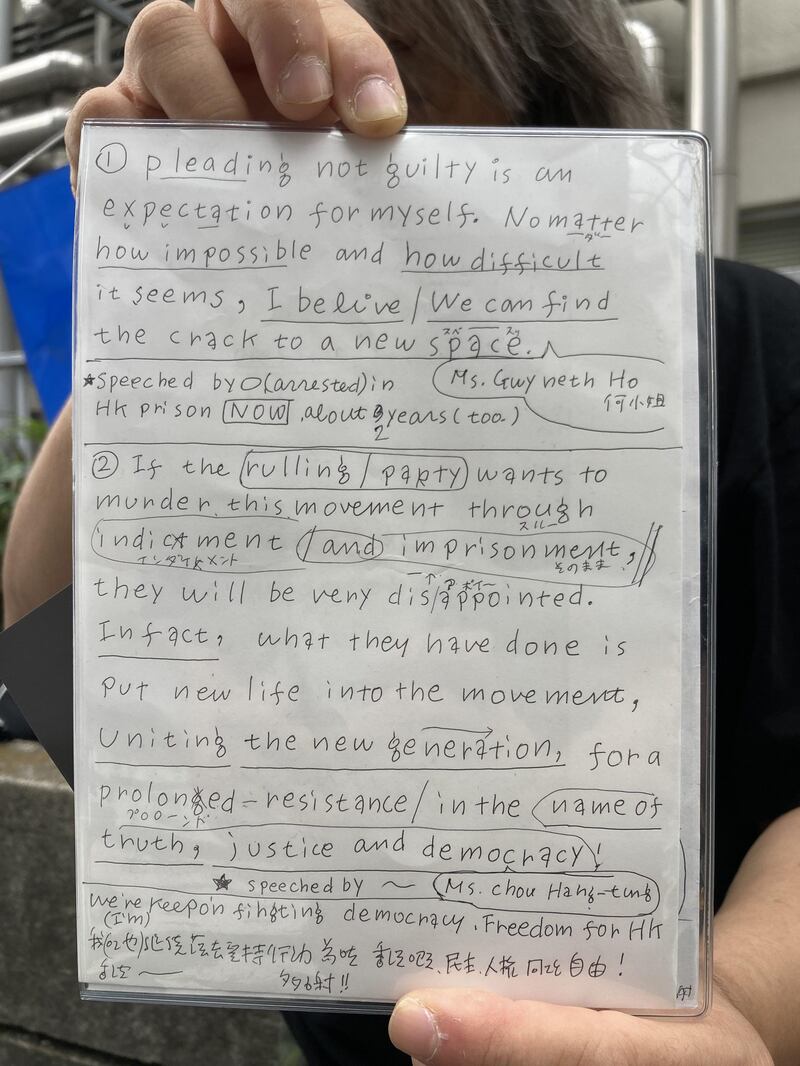 ① pleading not guilty is an
expectation for myself. No matter
ター
how impossible and how difficult
it seems, I belive / We can find
スペ スッ
the crack to a new space.
★Speeched by O(arrested)in
Ms. Gwyneth Ho
何小姐
HK prison NOW .about 2 years (too.)
② If the rulling / party wants to
murder this movement through
スルー
indictment / and imprisonment,
インダイトメント そのまま
they will be very dis/appointed.
In fact, what they have done is
put new life into the movement,
uniting the new generation, for a
prolonged-resistance / in the name of
プロローンド
truth, justice and democracy!
★ speeched by ～ Ms. chou Hang-tung
we're keep'on fingting democracy. Freedom for HK
(I'm)
民主.人権 自由!
多謝!!